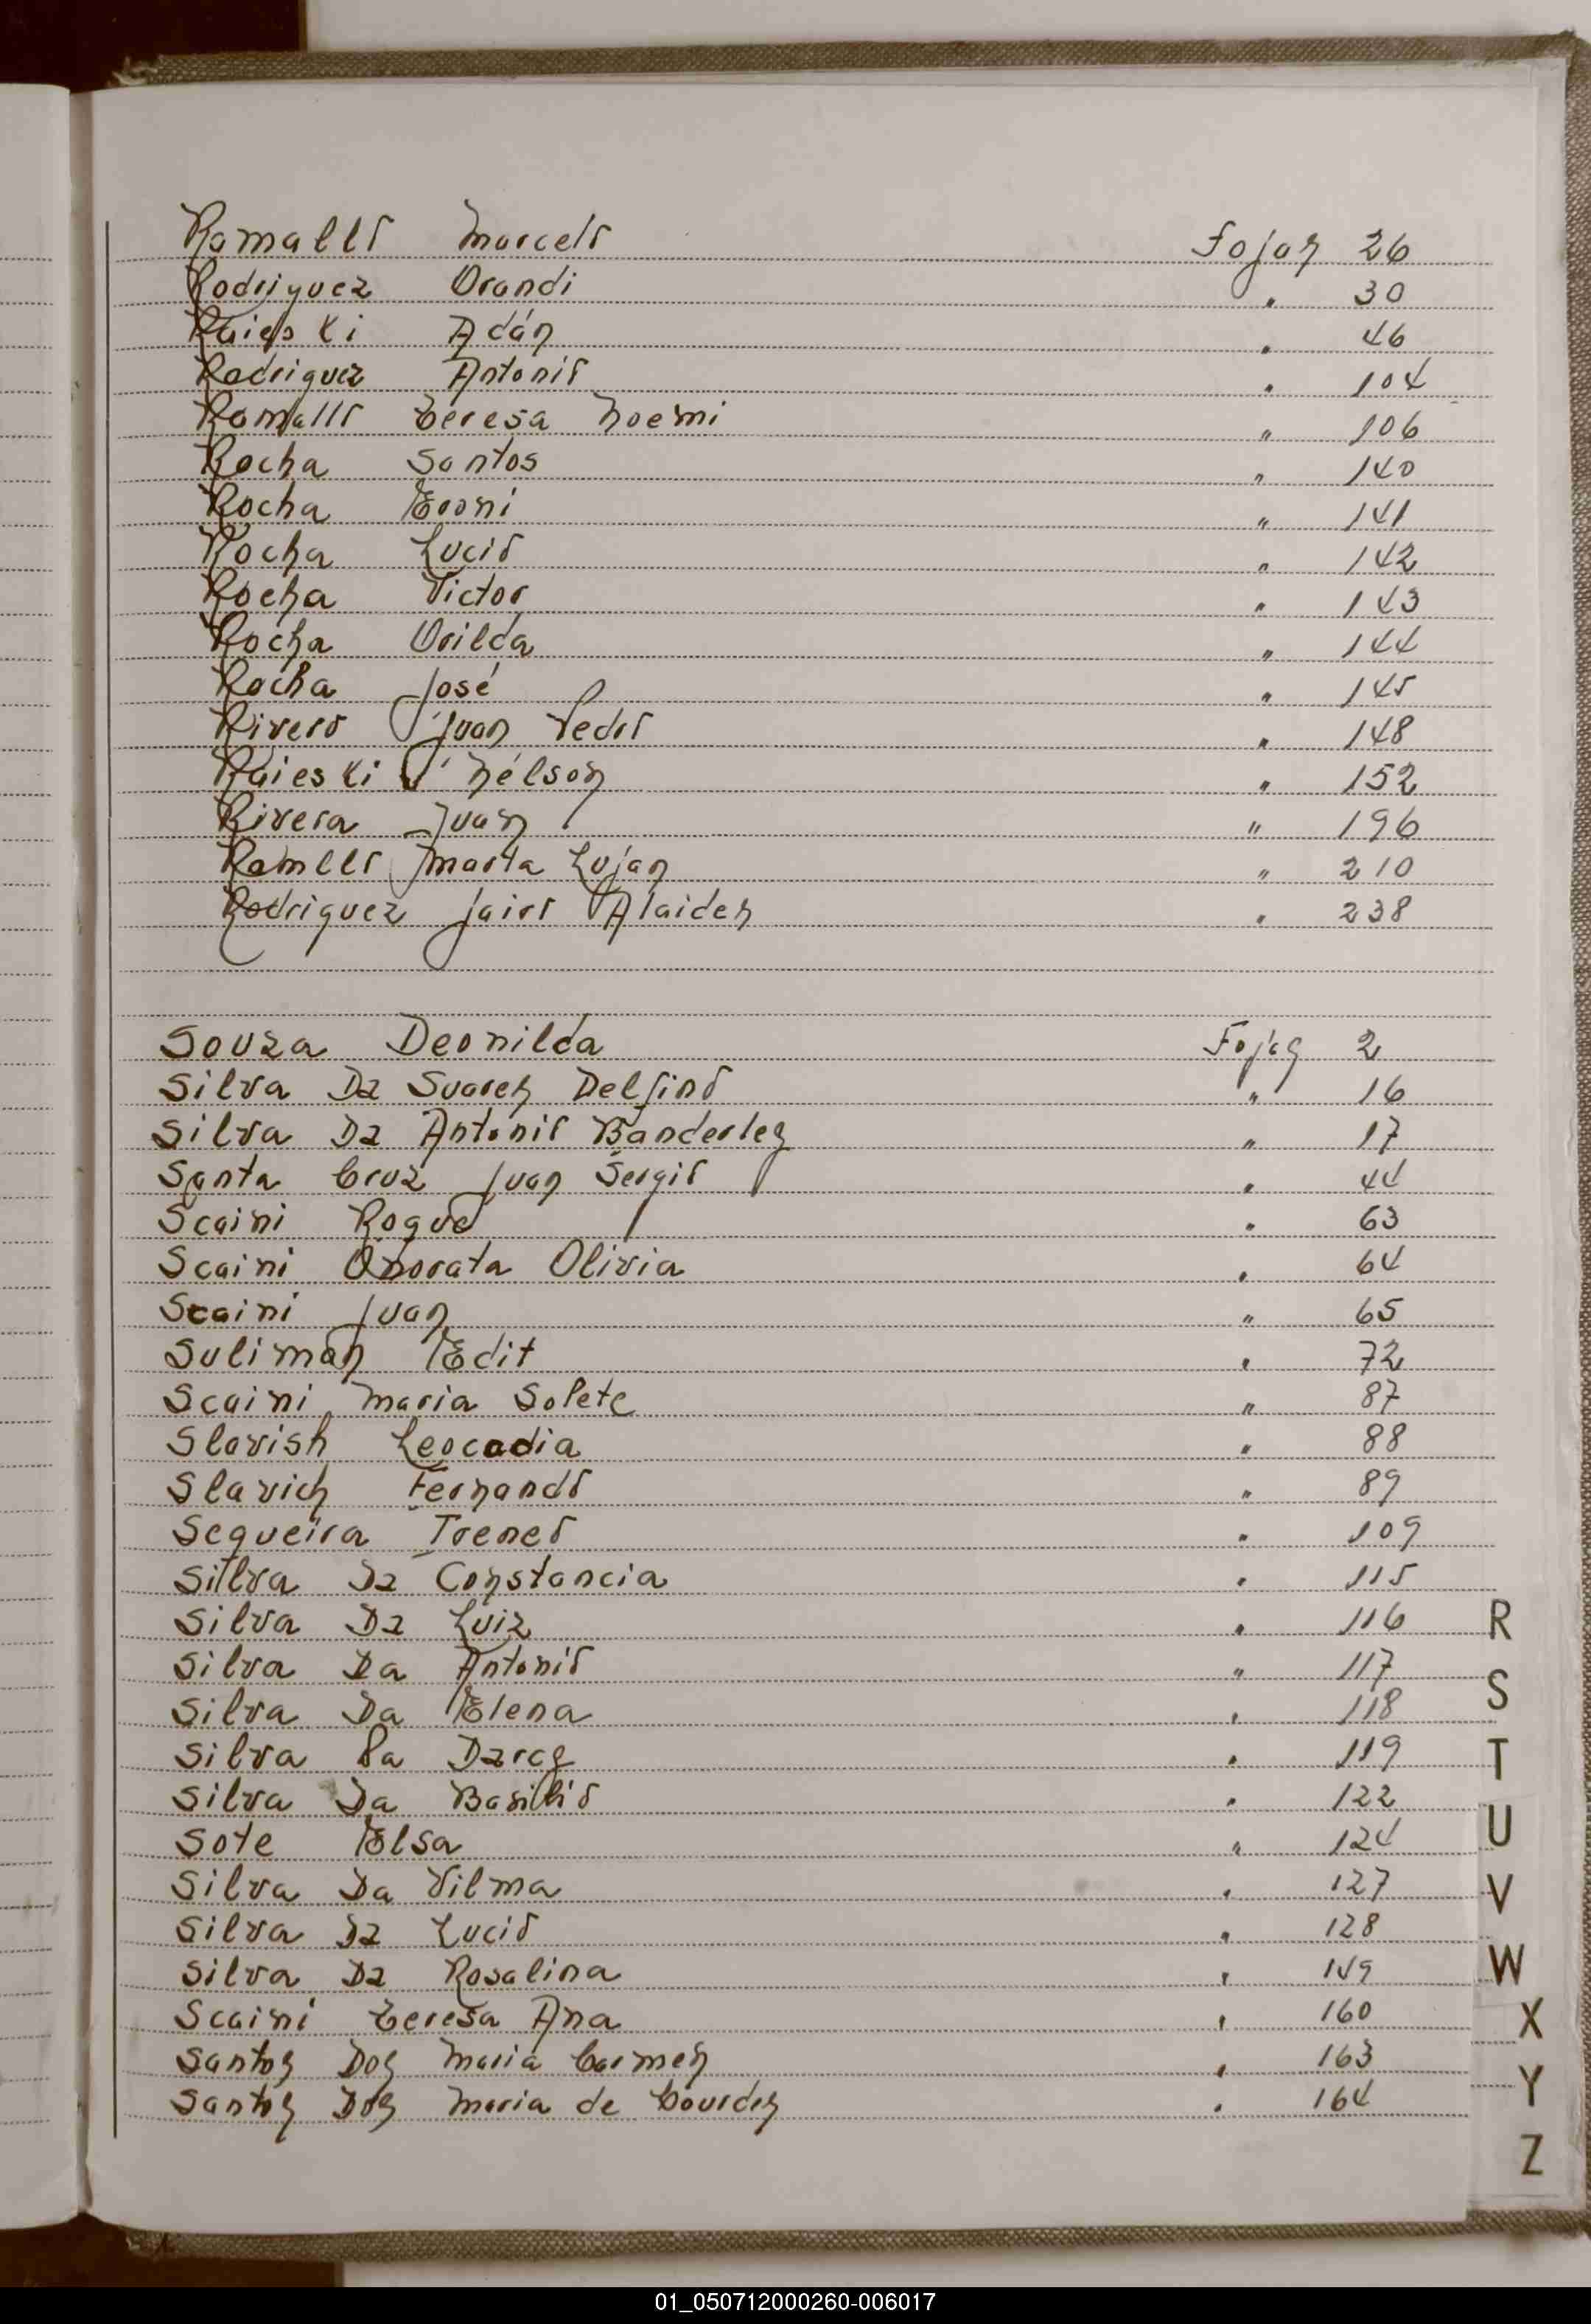 Ramallo Marcelo Fojas 26
Rodriguez Orandi " 30
Raieski Adán " 46
Rodriguez Antonio " 104
Romallo Teresa Noemi " 106
Rocha Santos " 140
Rocha Eroni " 141
Rocha Lucio " 142
Rocha Victor " 143
Rocha Orilda " 144
Rocha José " 145
Rivero Juan Pedro " 148
Raieski Nélson " 152
Rivera Juan " 196
Ramllo Marta Lujan " 210
Rodriguez Jairo Alaides " 238
Souza Deonilda Fojas 2
Silva Da Suares Delfino " 16
Silva Da Antonio Banderley " 17
Santa Cruz Juan Sergio " 44
Scaini Roque " 63
Scaini Onorata Olivia " 64
Scaini Juan " 65
Suliman Edit " 72
Scaini Maria Solete " 87
Slavish Leocadia " 88
Slavich Fernando " 89
Sequeira Ireneo " 109
Silva Da Constancia " 115
Silva Da Luiz " 116
Silva Da Antonio " 117
Silva Da Elena " 118
Silva Da Darcy " 119
Silva Da Basilio " 122
Sote Elsa " 124
Silva Da Vilma " 127
Silva Da Lucio " 128
Silva Da Rosalina " 149
Scaini Teresa Ana " 160
Santos Dos Maria Carmen " 163
Santos Dos Maria de Lourdes " 164
R
S
T
U
V
W
X
Y
Z
01_050712000260-006017